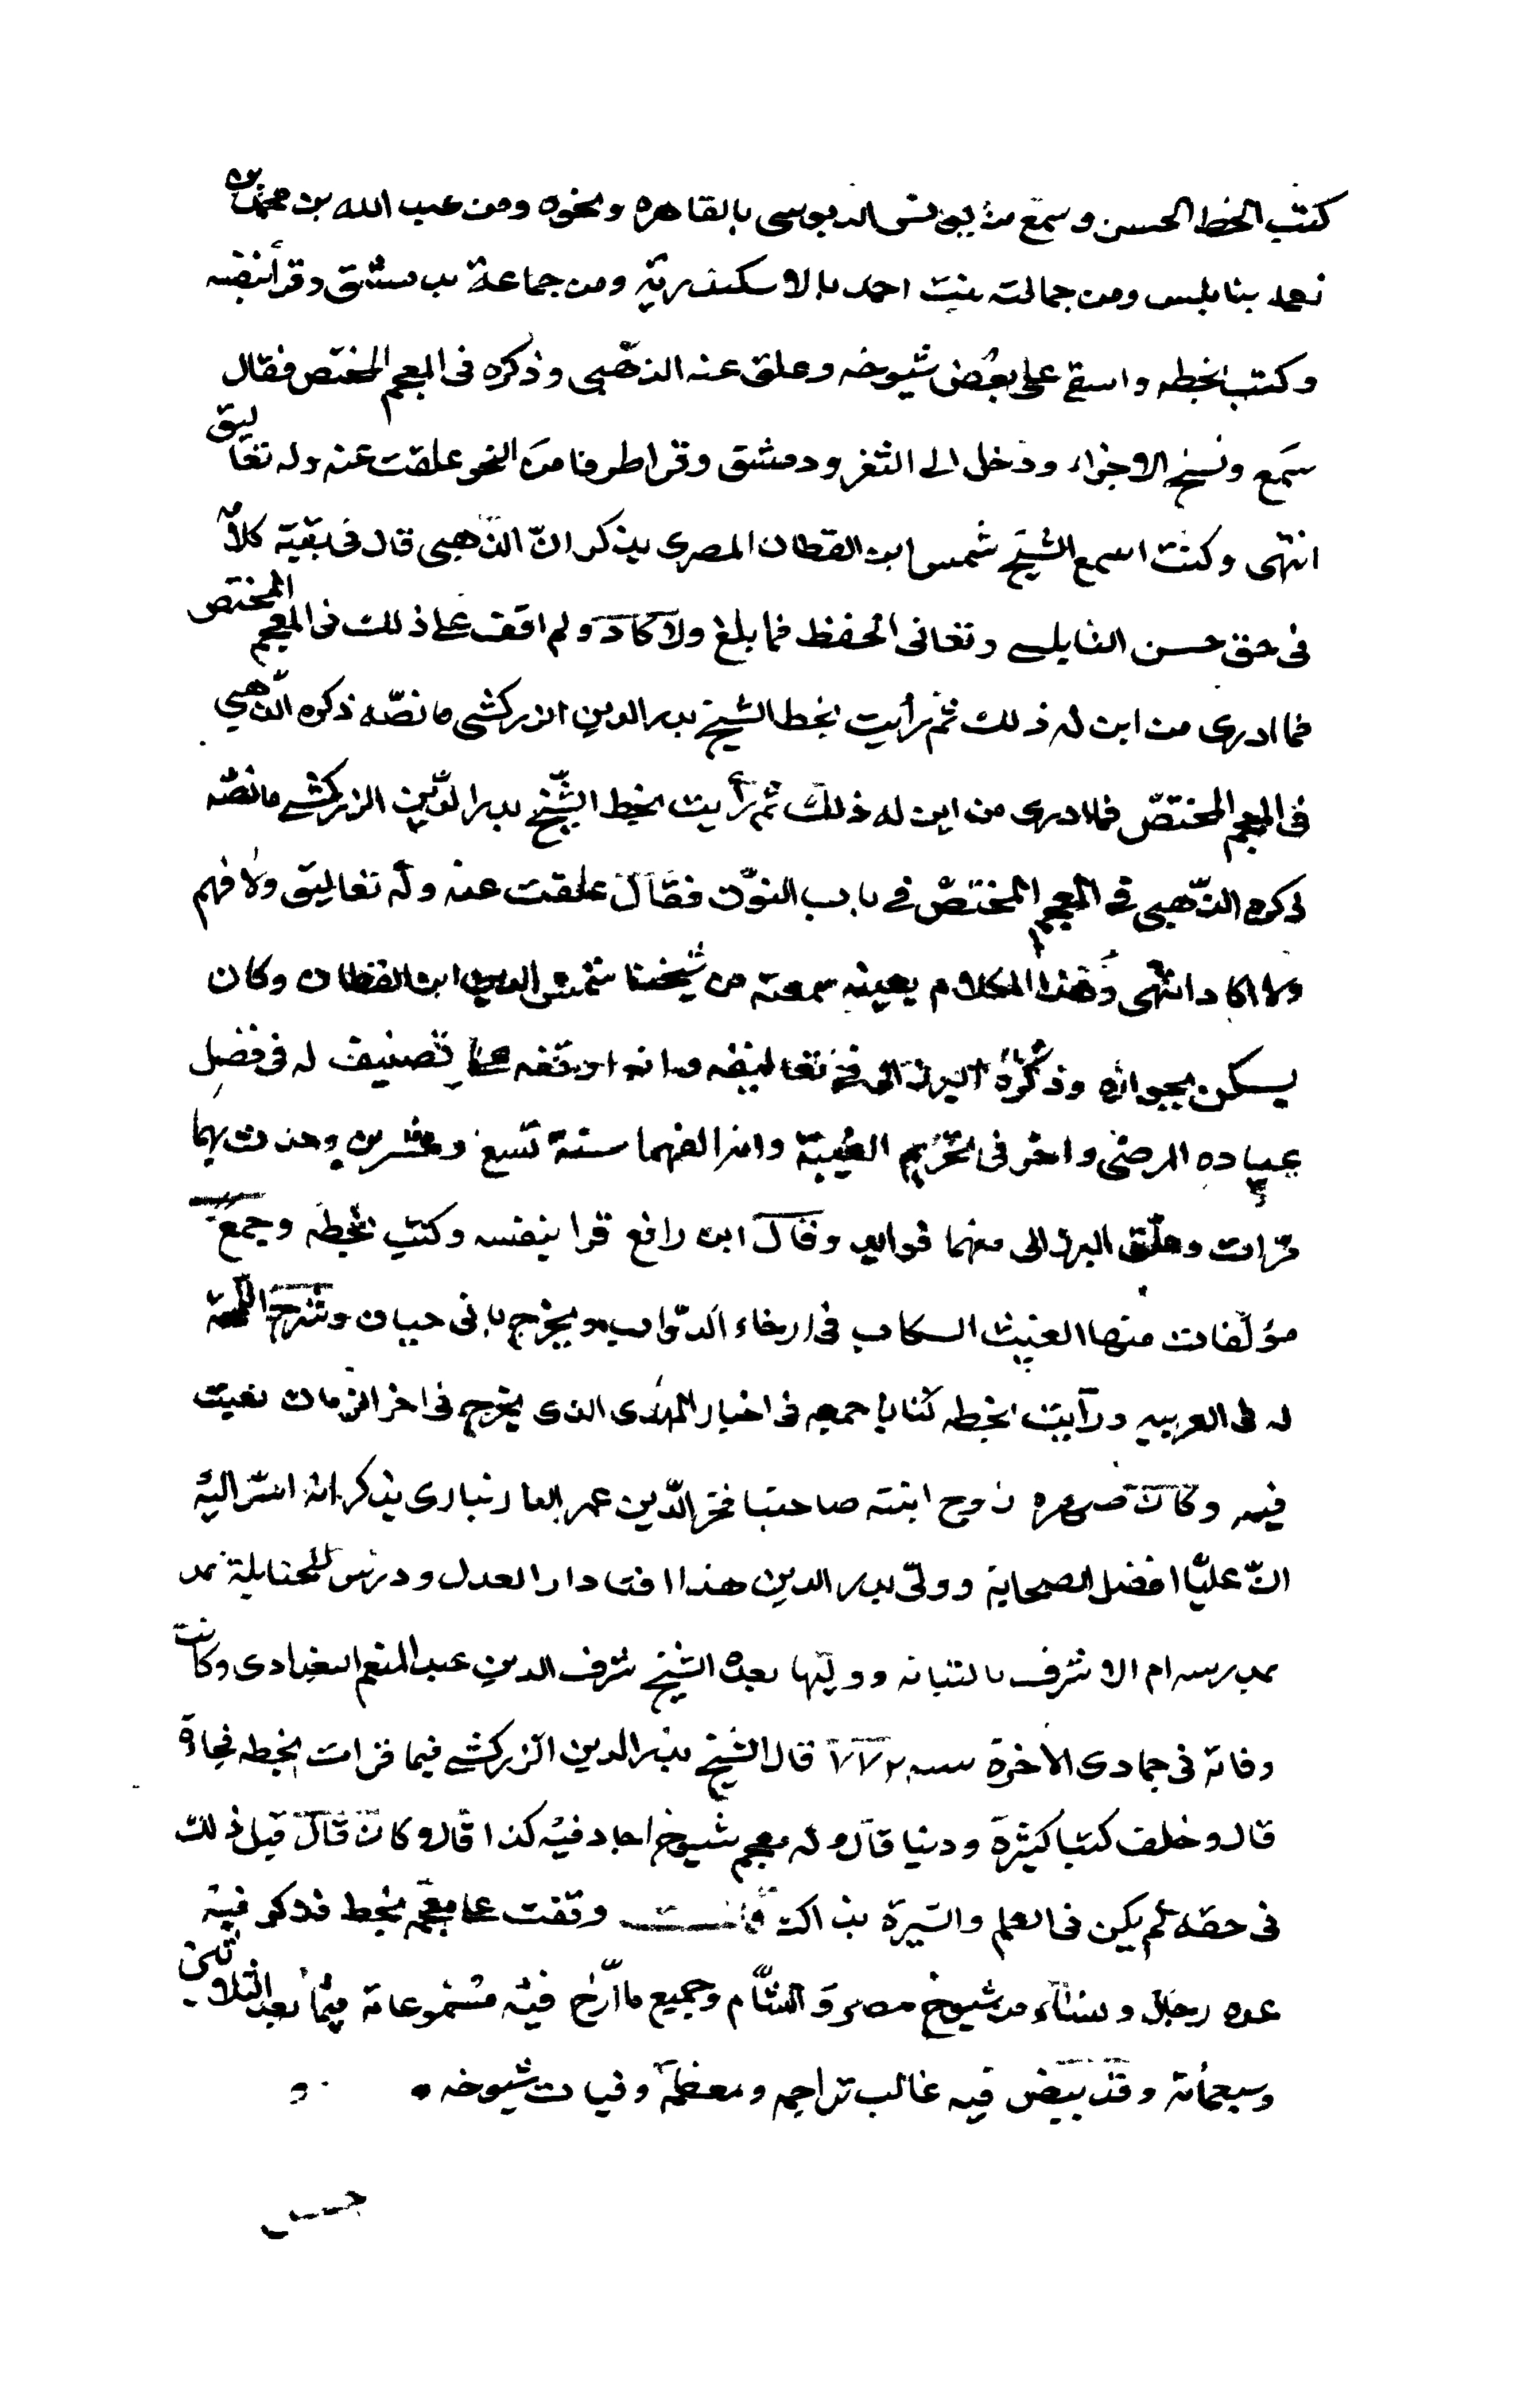 كتب الخط الحسن وسمع من يونس الدبوسى بالقاهره ونحوه ومن عبد الله بن محمد بن
نعمه بنابلس ومن جمالته بنت احمد بالاسكندرية ومن جماعة بدمشق وقرأ بنفسه
وكتب بخطه واسقع على بعض شيوخه وعلق عنه الذهبى وذكره فى المعجم المختص فقال
سمع ونسخ الاجزاء ودخل الى الثغر ودمشق وقرا طرفا من النحو علقت عنه وله تعاليق
انتهى وكنت اسمع الشيخ شمس ابن القطان المصرى يذكر انّ الذهبى قال فى بقية كلامه
فى حق حسن النابلسى وتعانى الحفظ فما بلغ ولا كاد ولم اقف على ذلك فى المعجم المختص
فما ادرى من اين له ذلك ثم رأيت بخط الشيخ بدر الدين الزركشى ما نصّه ذكره الذهبي
فى المعجم المختصّ فلا درى من اين له ذلك ثم رأيت بخط الشّيخ بدر الدّين الزركشى ما نصّه
ذكره الذّهبى فى المعجم المختصّ في باب النوّن فقال علقت عنه وله تعاليق ولا فهم
ولا اكاد انتهى وهذا الكلام بعينه سمعته من شيخنا شمس الدين ابن القطان وكان
يسكن بجواره وذكره البرزالى فى تعاليقه وانه اوقفه على تصنيف له فى فضل
عياده المرضى واخر فى تحريم الغيبة وانه الفهما سنة تسع وعشرين وحدث بهما
مرات وعلّق البرزالى منهما فوايد وقال ابن رافع قرا بنفسه وكتب بخطه وجمع
مؤلّفات منها الغيث السكاب فى ارخاء الذوّاب ويخرج بابى حيان وشرح اللّمحة
له فى العربيه ورأيت بخطه كتابا جمعه فى اخبار المهدى الذى يخرج فى اخر الزمان تعبت
فيه وكان صهره زوج ابنته صاحبنا فخر الدّين عمر البارنبارى يذكر انه اسرّ اليه
انّ عليّا افضل الصحابة وولّى بدر الدين هذا افتا دار العدل ودرّس للحنابلة
بمدرسه ام الاشرف بالتبانه ووليها بعده الشيخ شرف الدين عبد المنعم البغدادى وكانت
وفاته فى جمادى الاخرة سنه ٧٧٢ قال الشيخ بدر الدين الزركشى فيما قرات بخطه فجاة
قال وخلف كتبا كثيرة ودنيا قال وله معجم شيوخ اجاد فيه كذا قال وكان قال قبل ذلك
فى حقه لم يكن فى العلم والسّيرة بذاك قلت وقفت على معجمه بخط فذكر فيه
عده رجال ونساء من شيوخ مصر والشّام وجميع ما أرّخ فيه مسموعاته فيما بعد الثلاثين
وسبعمائة وقد بيض فيه غالب تراجمه ومعظمه وفيات شيوخه
حسن